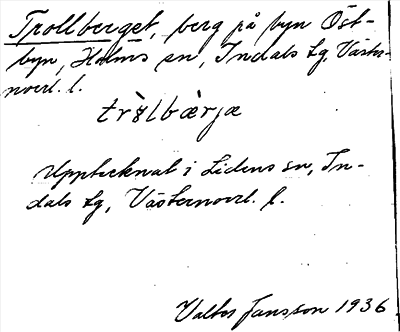 Trollberget, berg på byn Öst-
byn, Holms sn, Indals tg, Väster-
norrl. l.
trò̤lbæ̀rjæ
Upptecknat i Lidens sn, In-
dals tg, Västernorrl. l.
Valter Jansson 1936